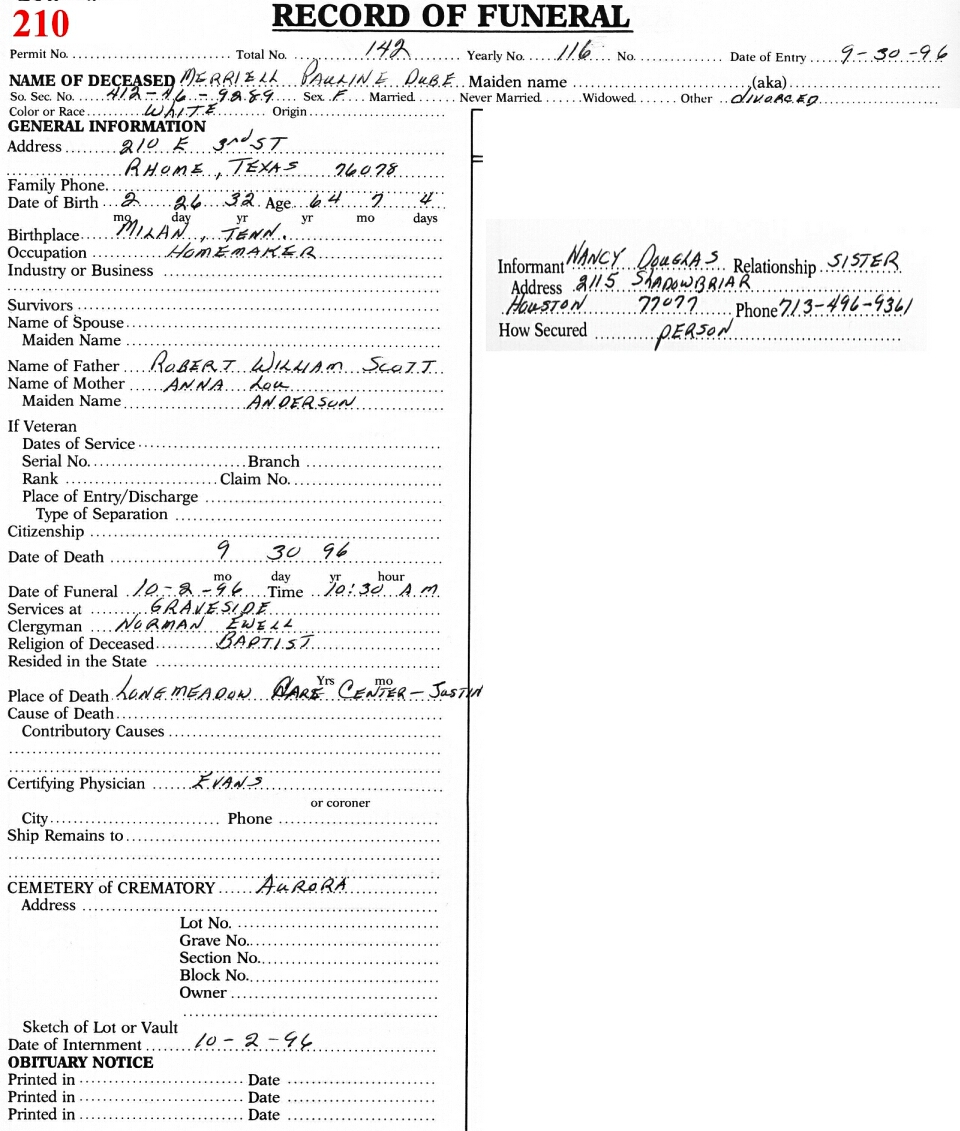 210
RECORD OF FUNERAL
Permit No. Total No. 142 Yearly No. 116 No. Date of Entry 9-30-96
NAME OF DECEASED MERRIELL PAULINE DUBE Maiden name (aka)
So. Sec. No. 412-46-9289 Sex F Married Never Married Widowed Other divorced
Color or Race WAITE Origin
GENERAL INFORMATION
Address 210 E 3rd ST
RHOME, TEXAS 76078
Family Phone
Date of Birth 2 26 32 Age 64 7 4
mo day yr yr mo days
Birthplace MILAN, TENN.
Occupation HOMEMAKER
Industry or Business
Survivors
Name of Spouse
Maiden Name
Name of Father ROBERT WILLIAM SCOTT
Name of Mother ANNA Lou
Maiden Name ANDERSON
If Veteran
Dates of Service
Serial No. Branch
Rank Claim No.
Place of Entry/Discharge
Type of Separation
Citizenship
Date of Death 9 30 96
mo day yr hour
Date of Funeral 10-2-96 Time 10:30 A.M.
Services at GRAVESIDE
Clergyman NORMAN EWELL
Religion of Deceased BAPTIST
Resided in the State
Yrs mo
Place of Death LONGMEADOW CARE CENTER - JUSTIN
Cause of Death
Contributory Causes
Certifying Physician EVANS
or coroner
City Phone
Ship Remains to
CEMETERY of CREMATORY AURORA
Address
Lot No.
Grave No.
Section No.
Block No.
Owner
Sketch of Lot or Vault
Date of Internment 10-2-96
OBITUARY NOTICE
Printed in Date
Printed in Date
Printed in Date
Informant NANCY DOUGLAS Relationship SISTER
Address 2115 SHADOWBRIAR
HOUSTON 77077 Phone 713-496-9361
How Secured PERSON